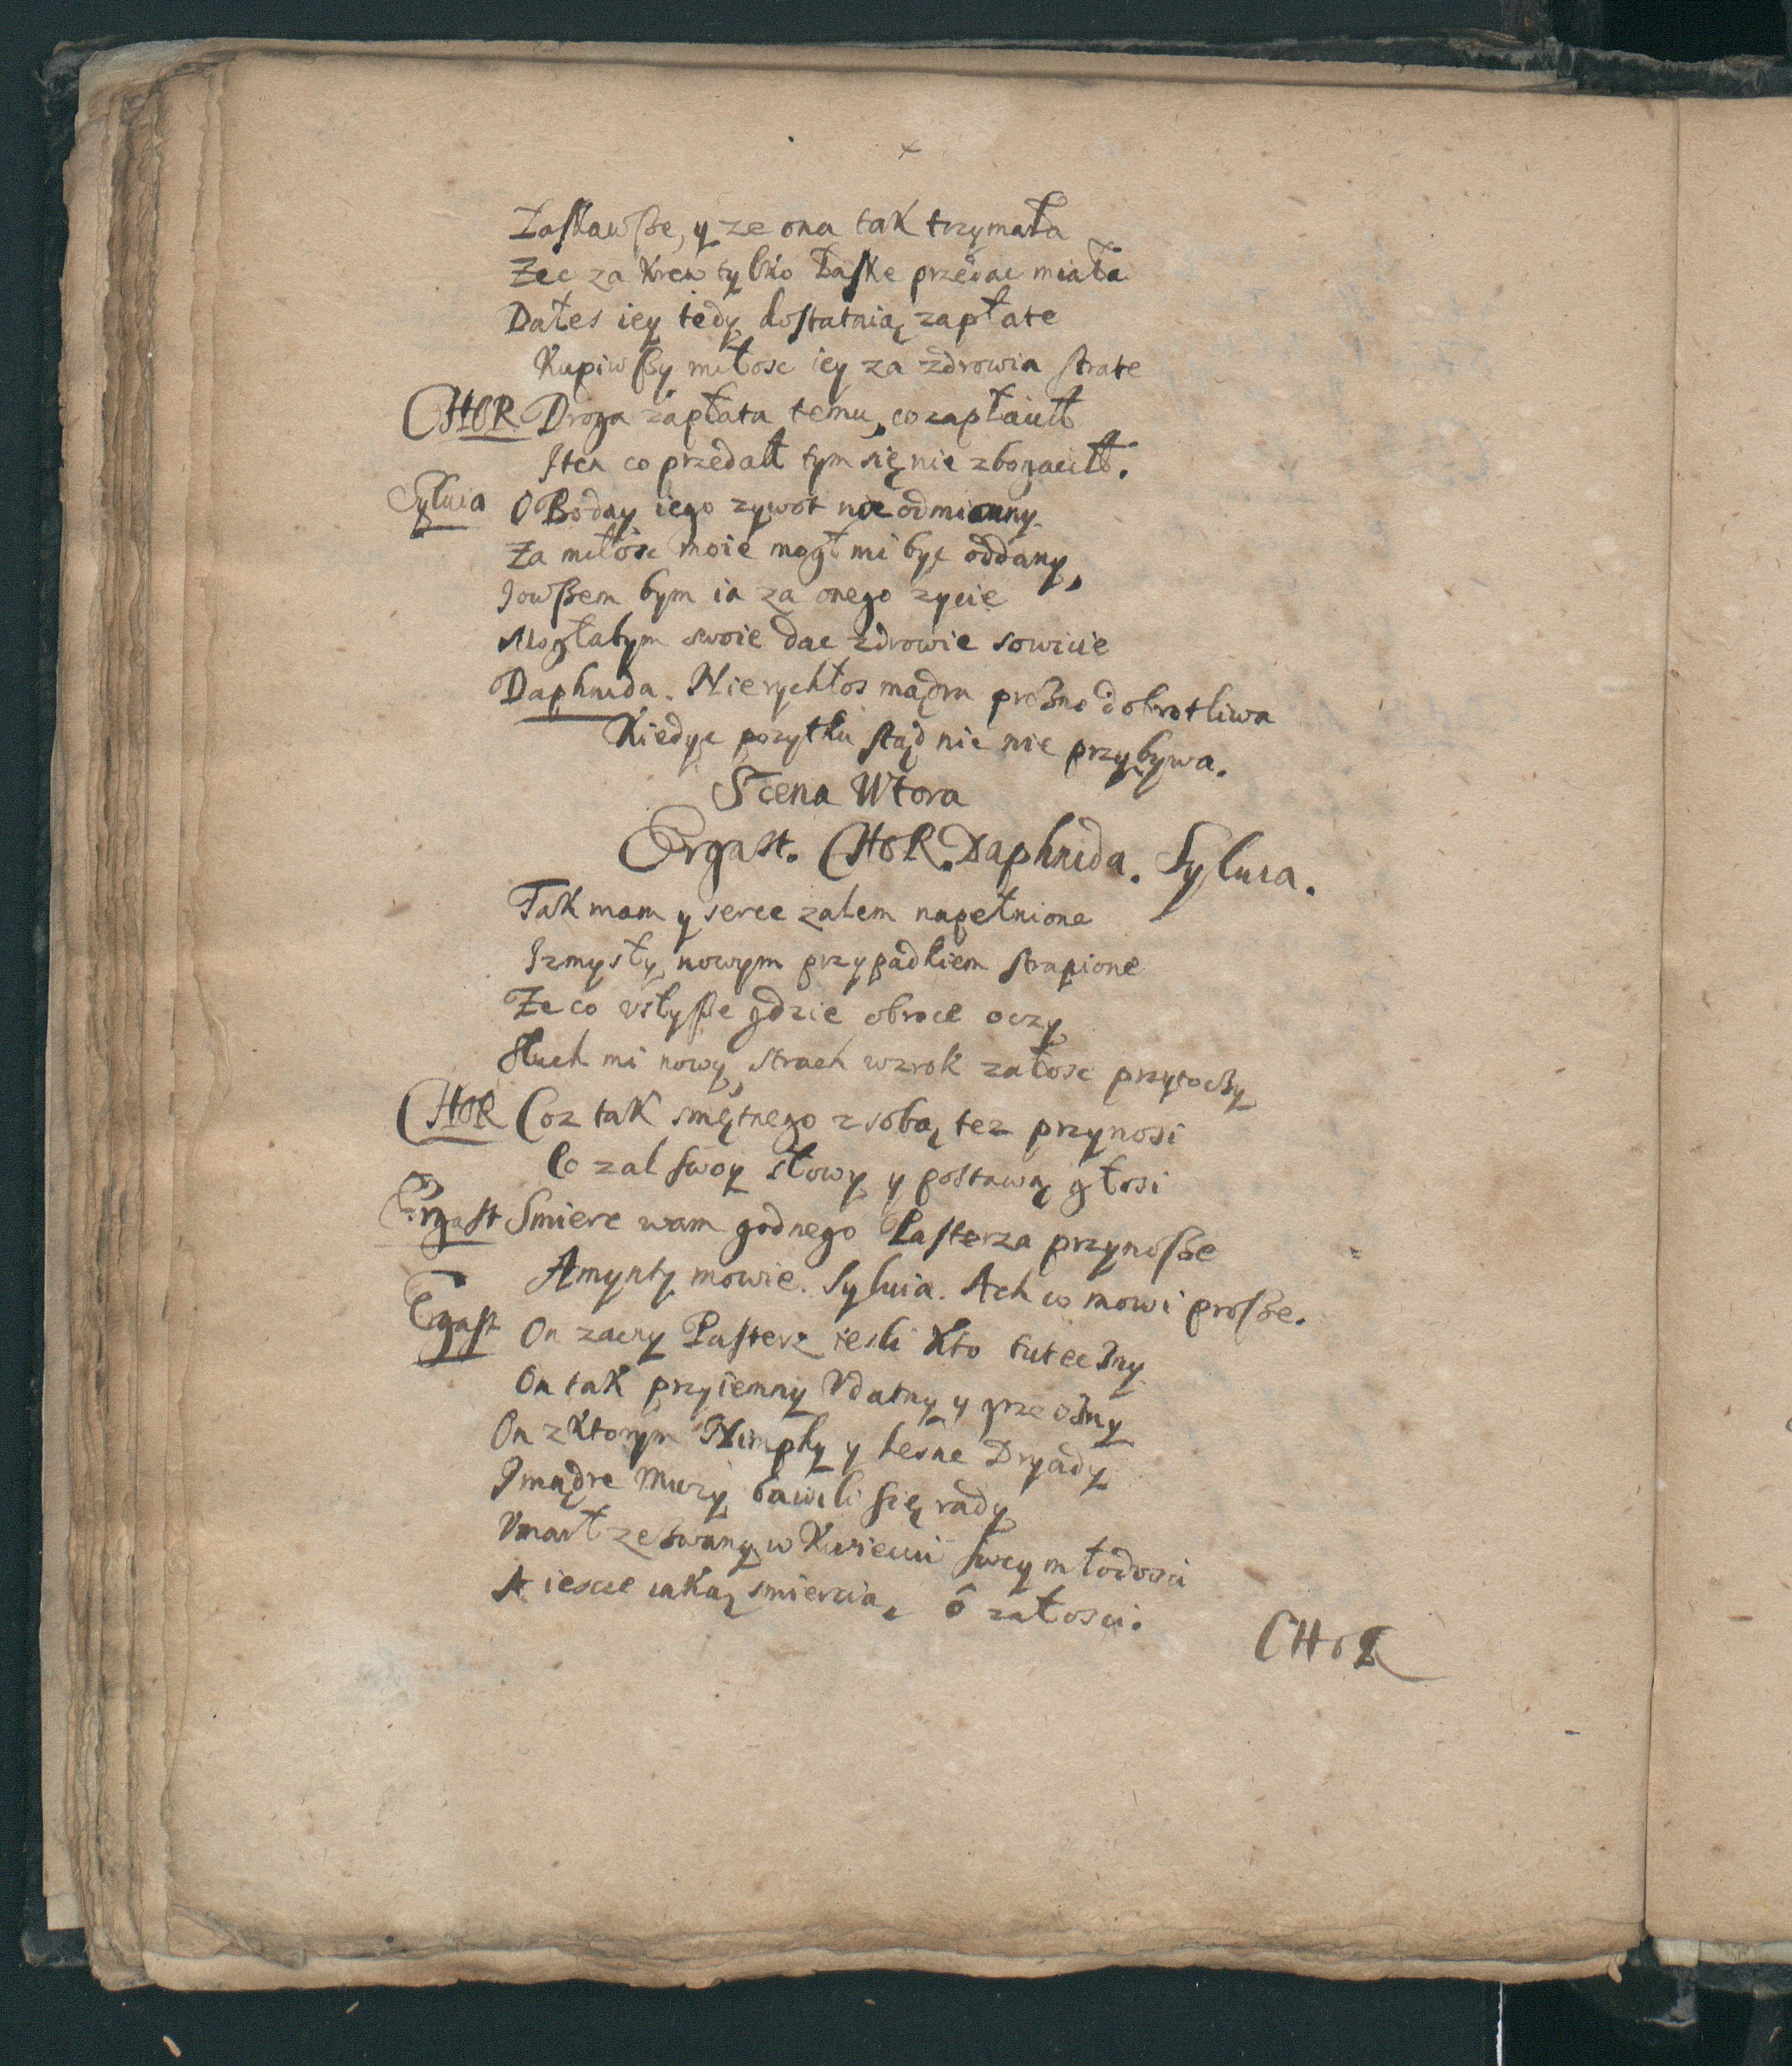 Łaskawsze, y ze ona tak trzymała
Zec za krew tylko Łaske przedac miała
Dałes iey tedy dostatnią zapłate
Kupiwszy miłosc iey za zdrowia strate
CHOR Droga zapłata temu, co zapłacił
Iten co przedał tym się nie zbogacił.
Sylvia O Boday iego zywot nieodmienny
Za miłosc moie mogł mi byc oddany,
Iowszem bym ia za onego zycie
Mogłabym swoie dac zdrowie sowicie
Daphnida. Nierychłos mądra prozno dobrotliwa
Kiedyc pozytku stąd nic nie przybywa.
Scena Wtora
Ergast. CHOR. Daphnida. Sylvia.
Tak mam y serce zalem napełnione
Izmysły nowym przypadkiem strapione
Ze co vsłysze gdzie obroce oczy
Słuch mi nowy strach wzrok załosc przytoczy
CHOR Coz tak smętnego zsobą tez przynosi
Co zal swoy słowy y postawą głosi
Ergast Smierc wam godnego Pasterza przynosze
Amynty mowie. Sylvia. Ach co mowi prosze.
Ergast On zacny Pasterz iesli kto tuteczny
On tak przyiemny Vdatny y grzeczny
On zktorym Nimphy y lesne Dryady
Imądre Muzy bawili się rady
Vmarł zezwany w kwieciu swey młodosci
A iescze iaką smiercią, ô załosci.
CHOR